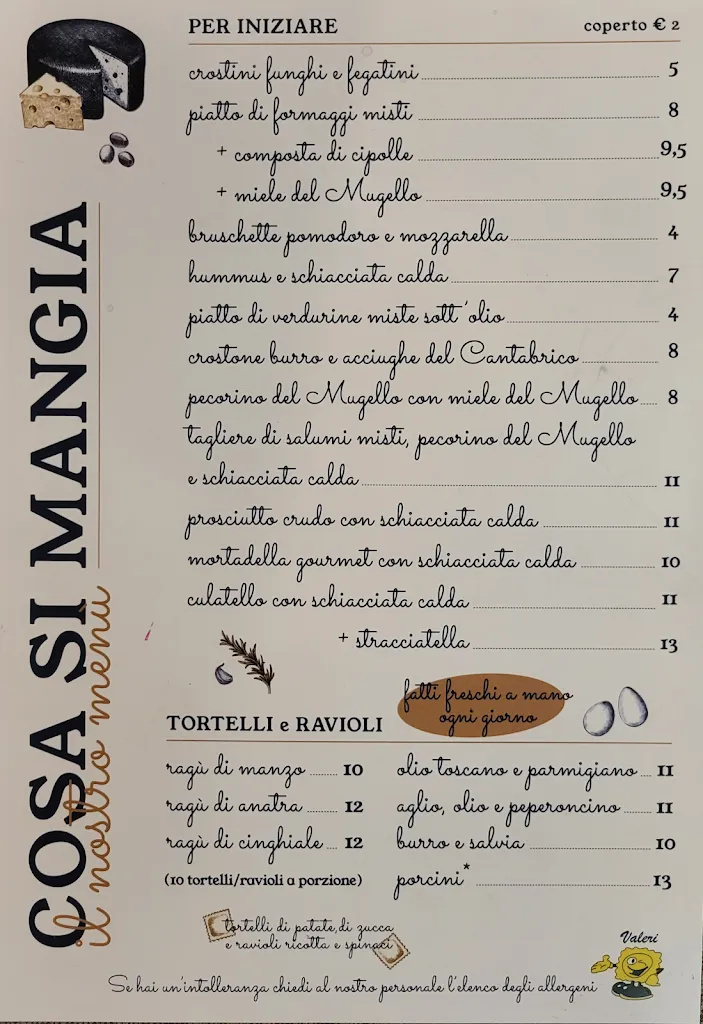 COSA SI MANGIA
il nostro menù
PER INIZIARE coperto € 2
crostini funghi e fegatini 5
piatto di formaggi misti 8
+ composta di cipolle 9,5
+ miele del Mugello 9,5
bruschette pomodoro e mozzarella 4
hummus e schiacciata calda 7
piatto di verdurine miste sott'olio 4
crostone burro e acciughe del Cantabrico 8
pecorino del Mugello con miele del Mugello 8
tagliere di salumi misti, pecorino del Mugello
e schiacciata calda 11
prosciutto crudo con schiacciata calda 11
mortadella gourmet con schiacciata calda 10
culatello con schiacciata calda 11
+ stracciatella 13
fatti freschi a mano
ogni giorno
TORTELLI e RAVIOLI
ragù di manzo 10
ragù di anatra 12
ragù di cinghiale 12
(10 tortelli/ravioli a porzione)
olio toscano e parmigiano 11
aglio, olio e peperoncino 11
burro e salvia 10
porcini* 13
tortelli di patate, di zucca
e ravioli ricotta e spinaci
Valeri
Se hai un'intolleranza chiedi al nostro personale l'elenco degli allergeni